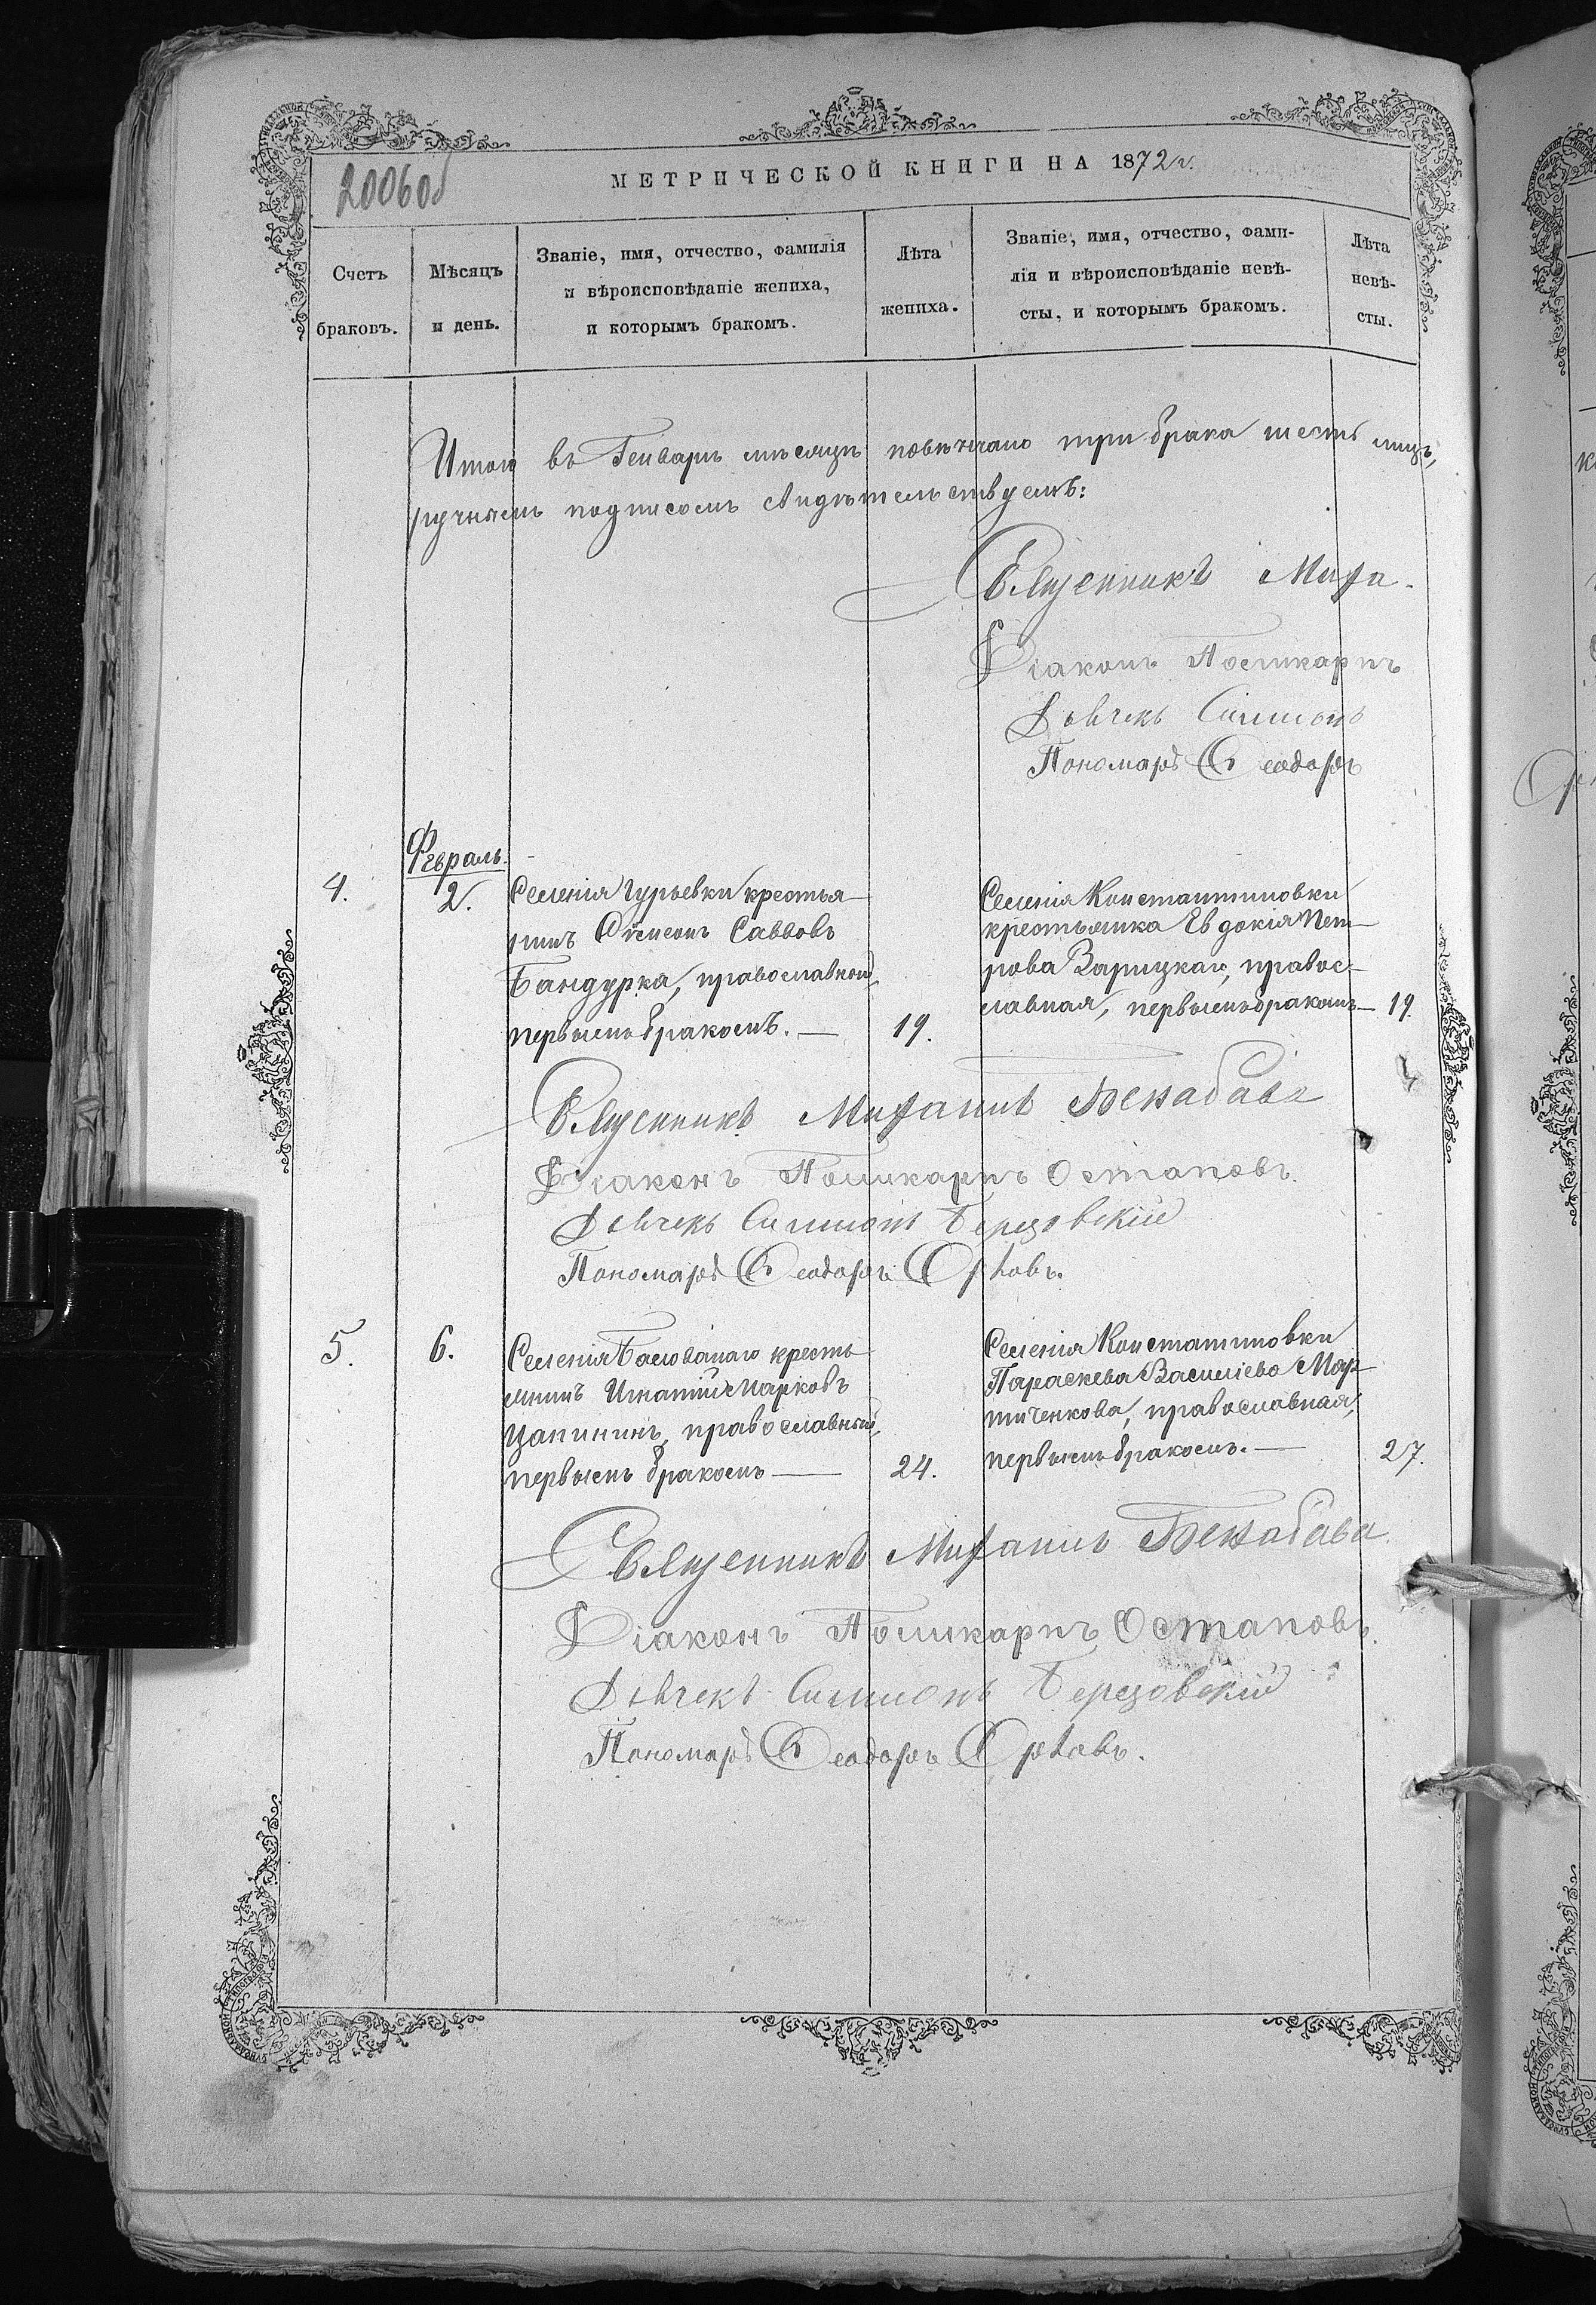 2006 об
МЕТРИЧЕСКОЙ КНИГИ НА 1872 г.
Счетъ браковъ.
Мѣсяцъ и день.
Званіе, имя, отчество, фамилія
и вѣроисповѣданіе жениха,
и которымъ бракомъ.
Лѣта жениха.
Званіе, имя, отчество, фами-
лія и вѣроисповѣданіе невѣ-
сты, и которымъ бракомъ.
Лѣта невѣ-
сты.
Итого въ Генварѣ мѣсяцѣ повѣнчано три брака шесть лицъ,
ручнымъ подписомъ свидѣтельствуемъ:
Священникъ Миха-
Діаконъ Поликарпъ
Дьячекъ Симионъ
Пономарь Ѳеодоръ
Февраль.
4.
2.
Селенія Гурьевки крестья-
нинъ Симеонъ Саввовъ
Бандурка, православной,
первымъ бракомъ. —
19.
Селенія Константиновки
крестьянка Евдокія Пет-
рова Зарицкая, правос-
лавная, первымъ бракомъ —
19.
Священникъ Михаилъ
Діаконъ Поликарпъ Остаповъ.
Дьячекъ Симионъ Березовскій
Пономарь Ѳеодоръ Орловъ.
5.
6.
Селенія кресть-
янинъ Игнатій Марковъ
Цапининъ, православный,
первымъ бракомъ —
24.
Селенія Константиновки
Параскева Василіева Мар-
тиченкова, православная,
первымъ бракомъ. —
27.
Священникъ Михаилъ
Діаконъ Поликарпъ Остаповъ.
Дьячекъ Симионъ Березовскій
Пономарь Ѳеодоръ Орловъ.